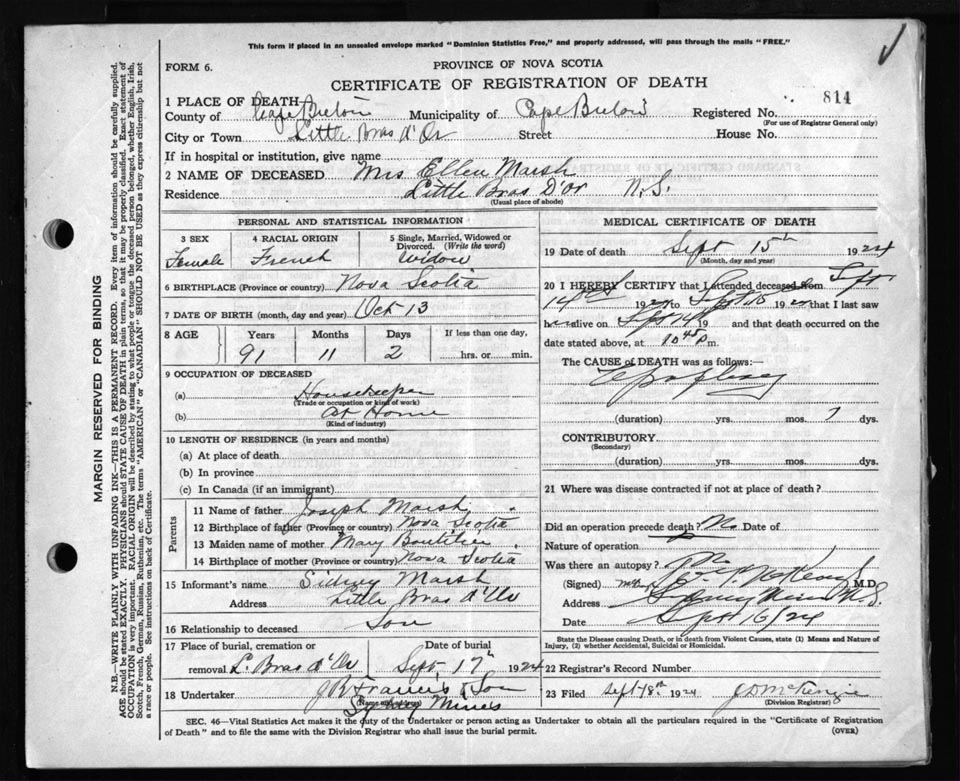 This form if placed in an unsealed envelope marked "Dominion Statistics Free," and properly addressed, will pass through the mails "FREE."
FORM 6.
PROVINCE OF NOVA SCOTIA
CERTIFICATE OF REGISTRATION OF DEATH
814
1 PLACE OF DEATH
County of Cape Breton Municipality of Cape Breton Registered No.
(For use of Registrar General only)
City or Town Little Bras d'Or Street House No.
If in hospital or institution, give name
2 NAME OF DECEASED Mrs Ellen Marsh
Residence Little Bras D'Or N.S.
(Usual place of abode)
PERSONAL AND STATISTICAL INFORMATION
3 SEX Female
4 RACIAL ORIGIN French
5 Single, Married, Widowed or Divorced. (Write the word) Widow
6 BIRTHPLACE (Province or country) Nova Scotia
7 DATE OF BIRTH (month, day and year) Oct 13
8 AGE Years Months Days If less than one day,
91 11 2 hrs. or min.
9 OCCUPATION OF DECEASED
(a) Housekeeper
(Trade or occupation or kind of work)
(b) At Home
(Kind of industry)
10 LENGTH OF RESIDENCE (in years and months)
(a) At place of death
(b) In province
(c) In Canada (if an immigrant)
Parents
11 Name of father Joseph Marsh
12 Birthplace of father (Province or country) Nova Scotia
13 Maiden name of mother Mary Boutilier
14 Birthplace of mother (Province or country) Nova Scotia
15 Informant's name Sidney Marsh
Address Little Bras d'Or
16 Relationship to deceased Son
17 Place of burial, cremation or removal L. Bras d'Or
Date of burial Sept 17th 1924
18 Undertaker J B Francis & Son
(Name and address)
Sydney Mines
MEDICAL CERTIFICATE OF DEATH
19 Date of death Sept 15th 1924
(Month, day and year)
20 I HEREBY CERTIFY that I attended deceased from Sept
14th 1924 to Sept 15 1924 that I last saw
h alive on Sept 14 19 and that death occurred on the
date stated above, at 10 45 P m.
The CAUSE of DEATH was as follows:—
Apoplexy
(duration) yrs. mos. dys.
CONTRIBUTORY
(Secondary)
(duration) yrs. mos. dys.
21 Where was disease contracted if not at place of death?
Did an operation precede death? No Date of
Nature of operation
Was there an autopsy? No
(Signed) M.D.
Address Sydney Mines N.S.
Date Sept 16/24
State the Disease causing Death, or in death from Violent Causes, state (1) Means and Nature of
Injury, (2) whether Accidental, Suicidal or Homicidal.
22 Registrar's Record Number
23 Filed Sept 18th 1924 J D McKenzie
(Division Registrar)
SEC. 46—Vital Statistics Act makes it the duty of the Undertaker or person acting as Undertaker to obtain all the particulars required in the "Certificate of Registration
of Death" and to file the same with the Division Registrar who shall issue the burial permit.
(OVER)
MARGIN RESERVED FOR BINDING
N.B.—WRITE PLAINLY WITH UNFADING INK—THIS IS A PERMANENT RECORD. Every item of information should be carefully supplied.
AGE should be stated EXACTLY. PHYSICIANS should STATE CAUSE OF DEATH in plain terms, so that it may be properly classified. Exact statement of
OCCUPATION is very important. RACIAL ORIGIN will be described by stating to what people or tongue the deceased person belonged, whether English, Irish,
Scotch, French, German, Russian, Ruthenian, etc. The terms "AMERICAN" or "CANADIAN" SHOULD NOT BE USED as they express citizenship but not
a race or people. See instructions on back of Certificate.